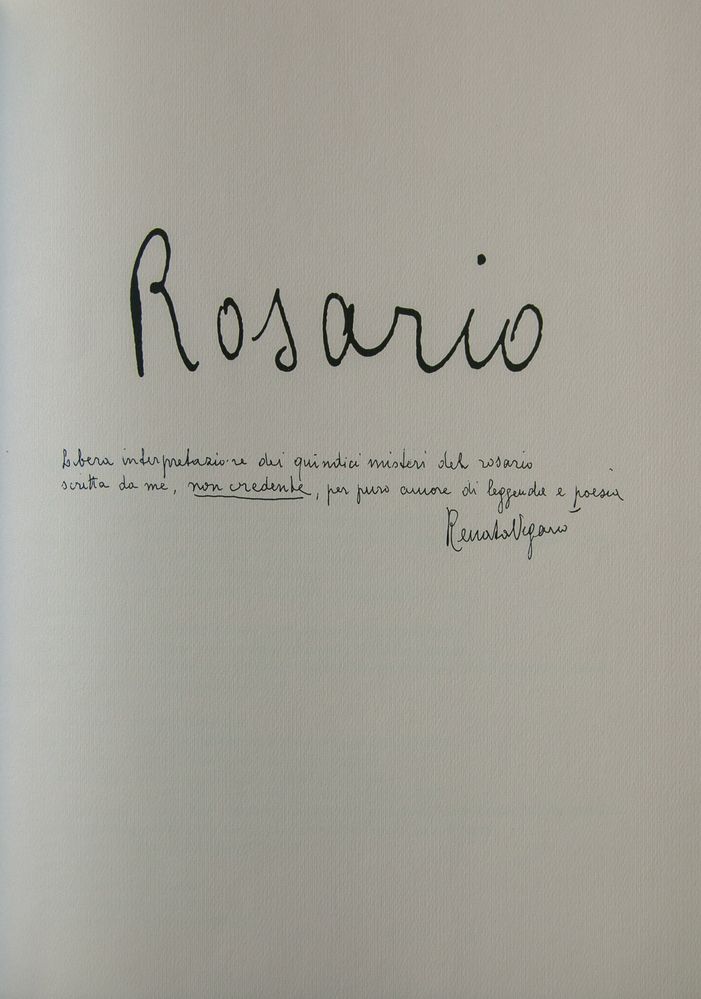 Rosario
Libera interpretazione dei quindici misteri del rosario
scritta da me, non credente, per puro amore di leggende e poesia
Renata Viganò